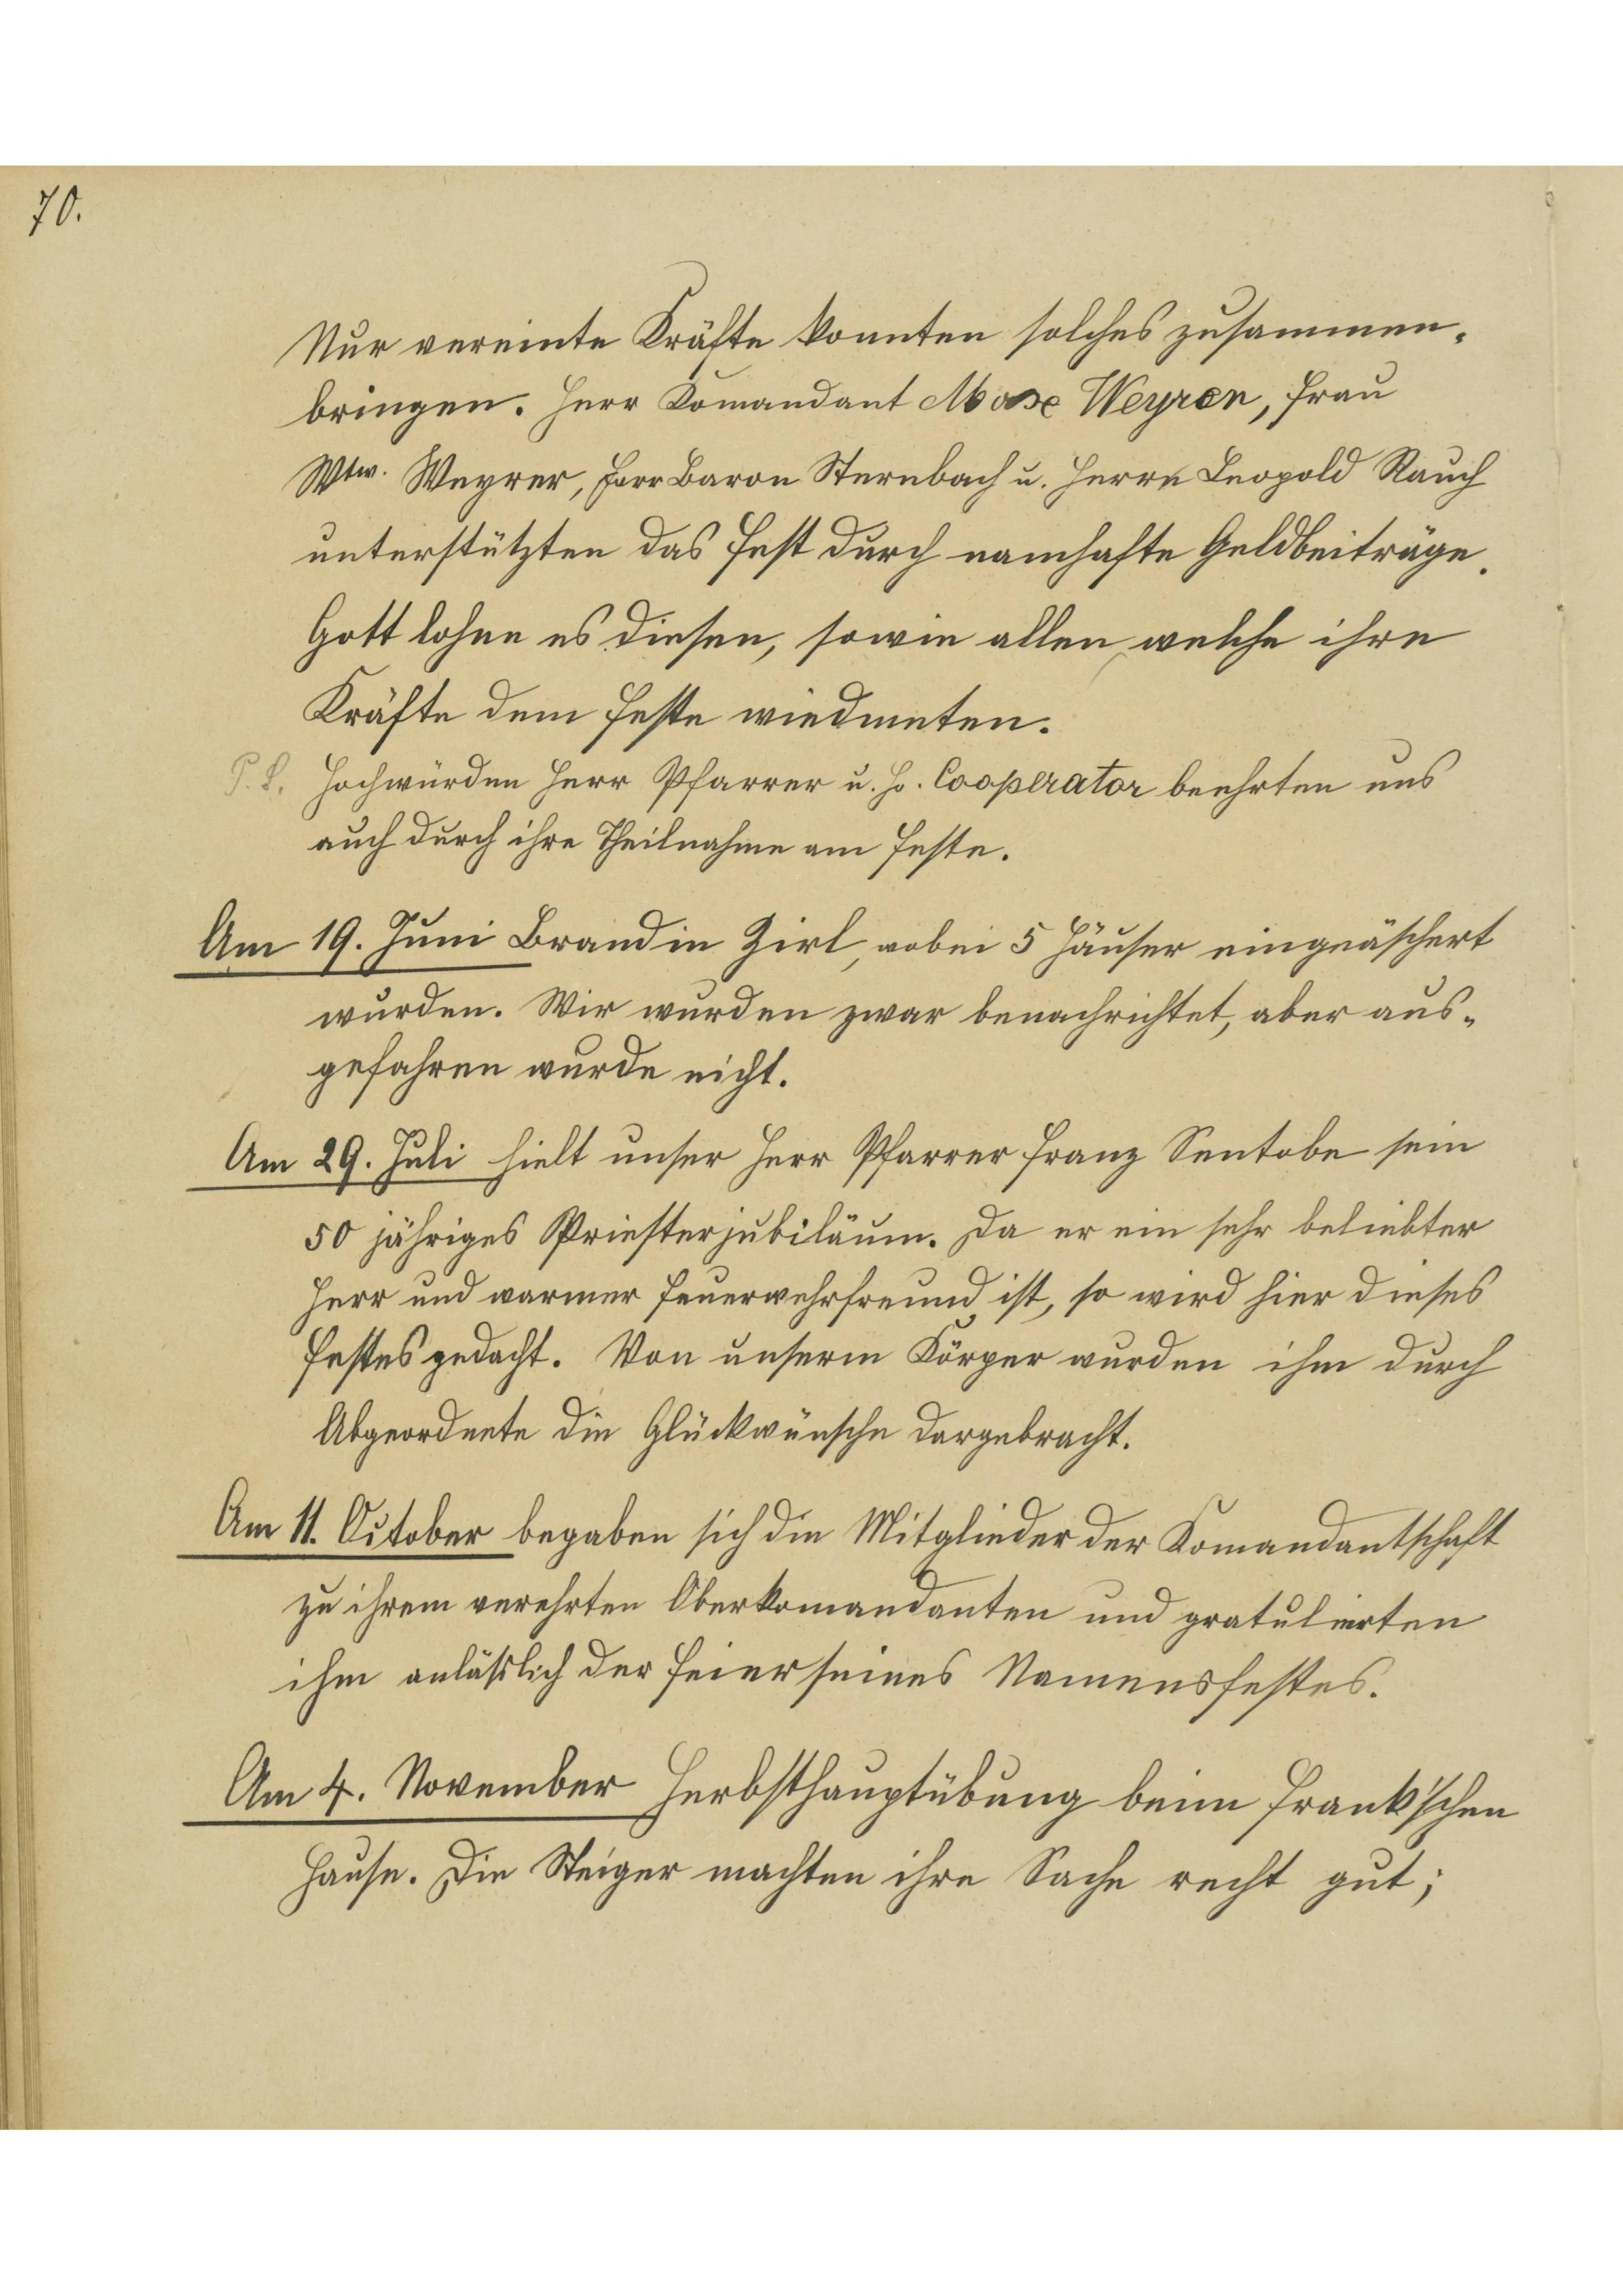 70.
Nur vereinte Kräfte konnten solches zusammen-
bringen. Herr Komandant Max Weyrer, Frau
Wtw. Weyrer, Herr Baron Sternbach u. Herrn Leopold Rauch
unterstützten das Fest durch namhafte Geldbeiträge.
Gott lohne es diesen, sowie allen, welche ihre
Kräfte dem Feste wiedmeten.
P.S. Hochwürden Herr Pfarrer u. H. Cooperator beehrten uns
auch durch ihre Theilnahme am Feste.
Am 19. Juni Brand in Zirl, wobei 5 Häuser eingeäschert
wurden. Wir wurden zwar benachrichtet, aber aus-
gefahren wurde nicht.
Am 29. Juli hielt unser Herr Pfarrer Franz Sentobe sein
50 jähriges Priesterjubiläum. Da er ein sehr beliebter
Herr und warmer Feuerwehrfreund ist, so wird hier dieses
Festes gedacht. Von unserm Körper wurden ihm durch
Abgeordnete die Glückwünsche dargebracht.
Am 11. October begaben sich die Mitglieder der Komandantschaft
zu ihrem verehrten Oberkomandanten und gratulierten
ihm anläßlich der Feier seines Namensfestes.
Am 4. November Herbsthauptübung beim Frank'schen
Hause. Die Steiger machten ihre Sache recht gut;